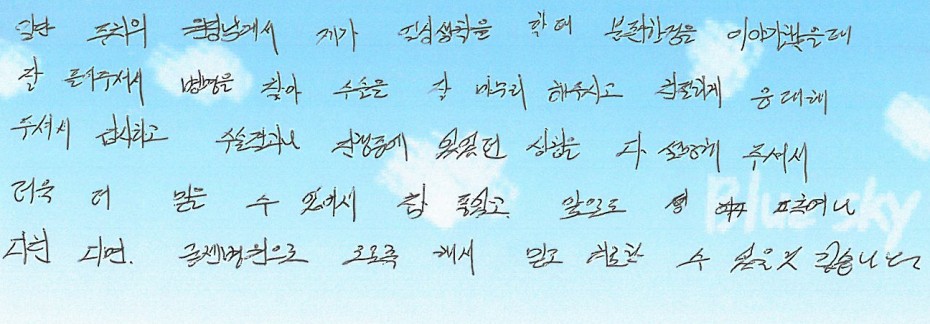 일단 주치의 원장님께서 제가 진심생각을 하며 불편한점을 이야기했을때
잘 들어주셔서 병명을 찾아 수술을 잘 마무리 해주시고 친절하게 응대해
주셔서 감사하고 수술결과나 진행중에 있었던 상황을 다 설명해 주셔서
더욱 더 믿을 수 있어서 참 좋았고. 앞으로 형 누구 그측에나
다친 다면. 병원으로 오도록 해서 믿고 치료할 수 있을것 같습니다
Blue sky